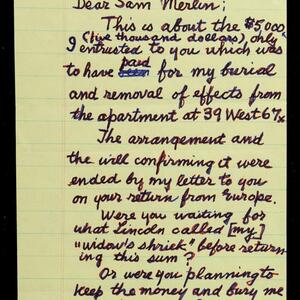 Dear Sam Merlin;
This is about the $5,000
(five thousand dollars), only
I entrusted to you which was
to have paid for my burial
and removal of effects from
the apartment at 39 West 67
The arrangement and
the will confirming it were
ended by my letter to you
on your return from Europe.
Were you waiting for
what Lincoln called [my]
"widow's shriek" before return-
ing this sum?
Or were you planning to
keep the money and bury me